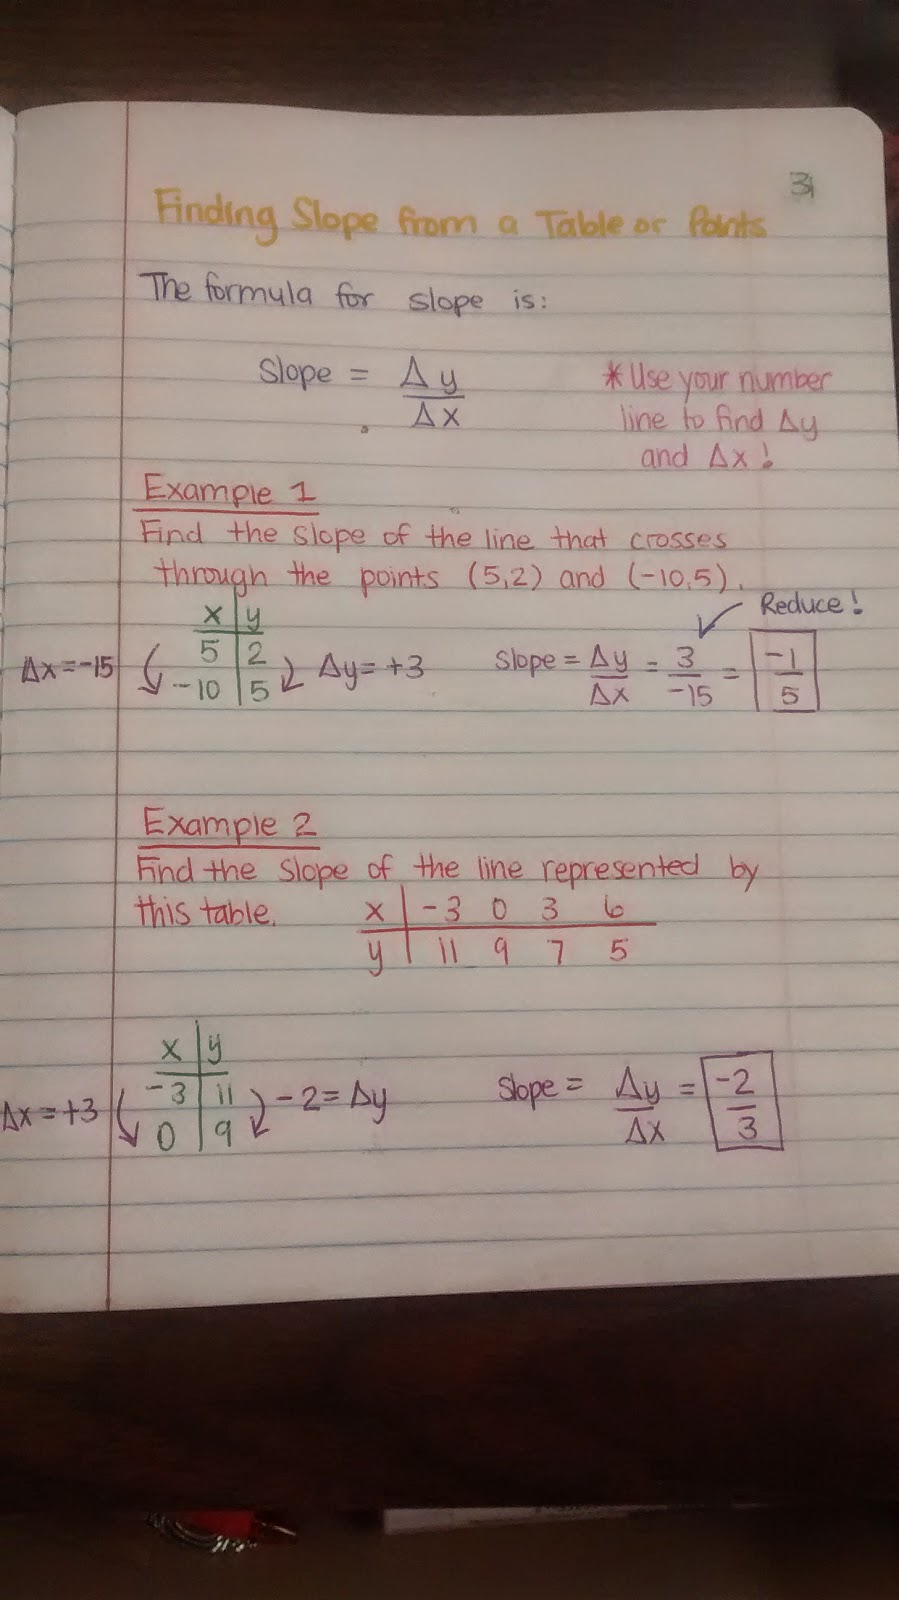 31
Finding Slope from a Table or Points
The formula for slope is:
Slope = Δy / Δx
* Use your number
line to find Δy
and Δx!
Example 1
Find the slope of the line that crosses
through the points (5,2) and (-10,5).
x | y
5 | 2
-10 | 5
Δx = -15
Δy = +3
Reduce!
Slope = Δy / Δx = 3 / -15 = -1 / 5
Example 2
Find the slope of the line represented by
this table.
x | -3 0 3 6
y | 11 9 7 5
x | y
-3 | 11
0 | 9
Δx = +3
-2 = Δy
Slope = Δy / Δx = -2 / 3